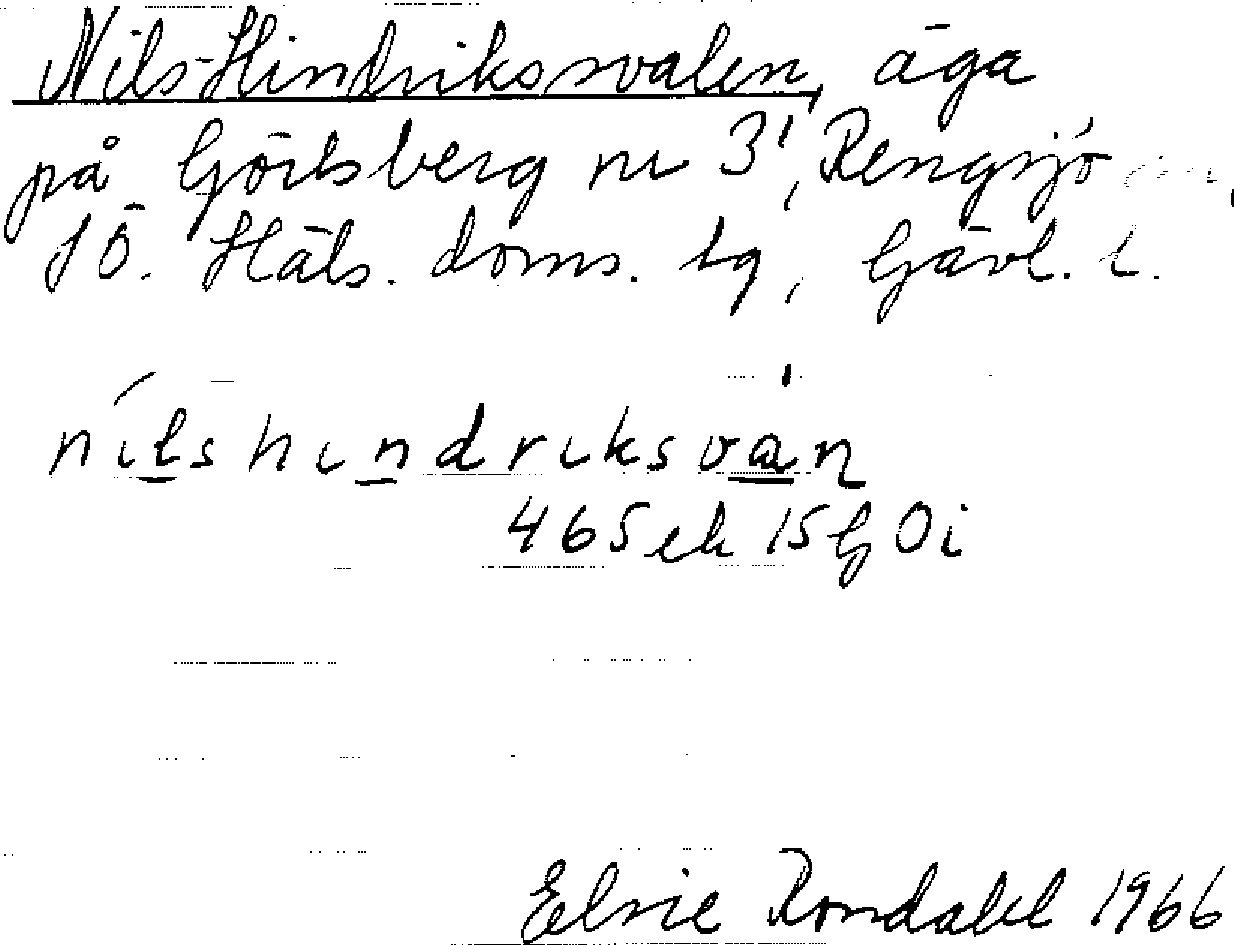 Nils-Hindriksvalen, äga
på Görtsberg nr 3¹, Rengsjö sn,
SÖ. Häls. doms. tg, Gävl. l.
nilshindriksván
465 ek 15 G 0 i
Elsie Rondahl 1966